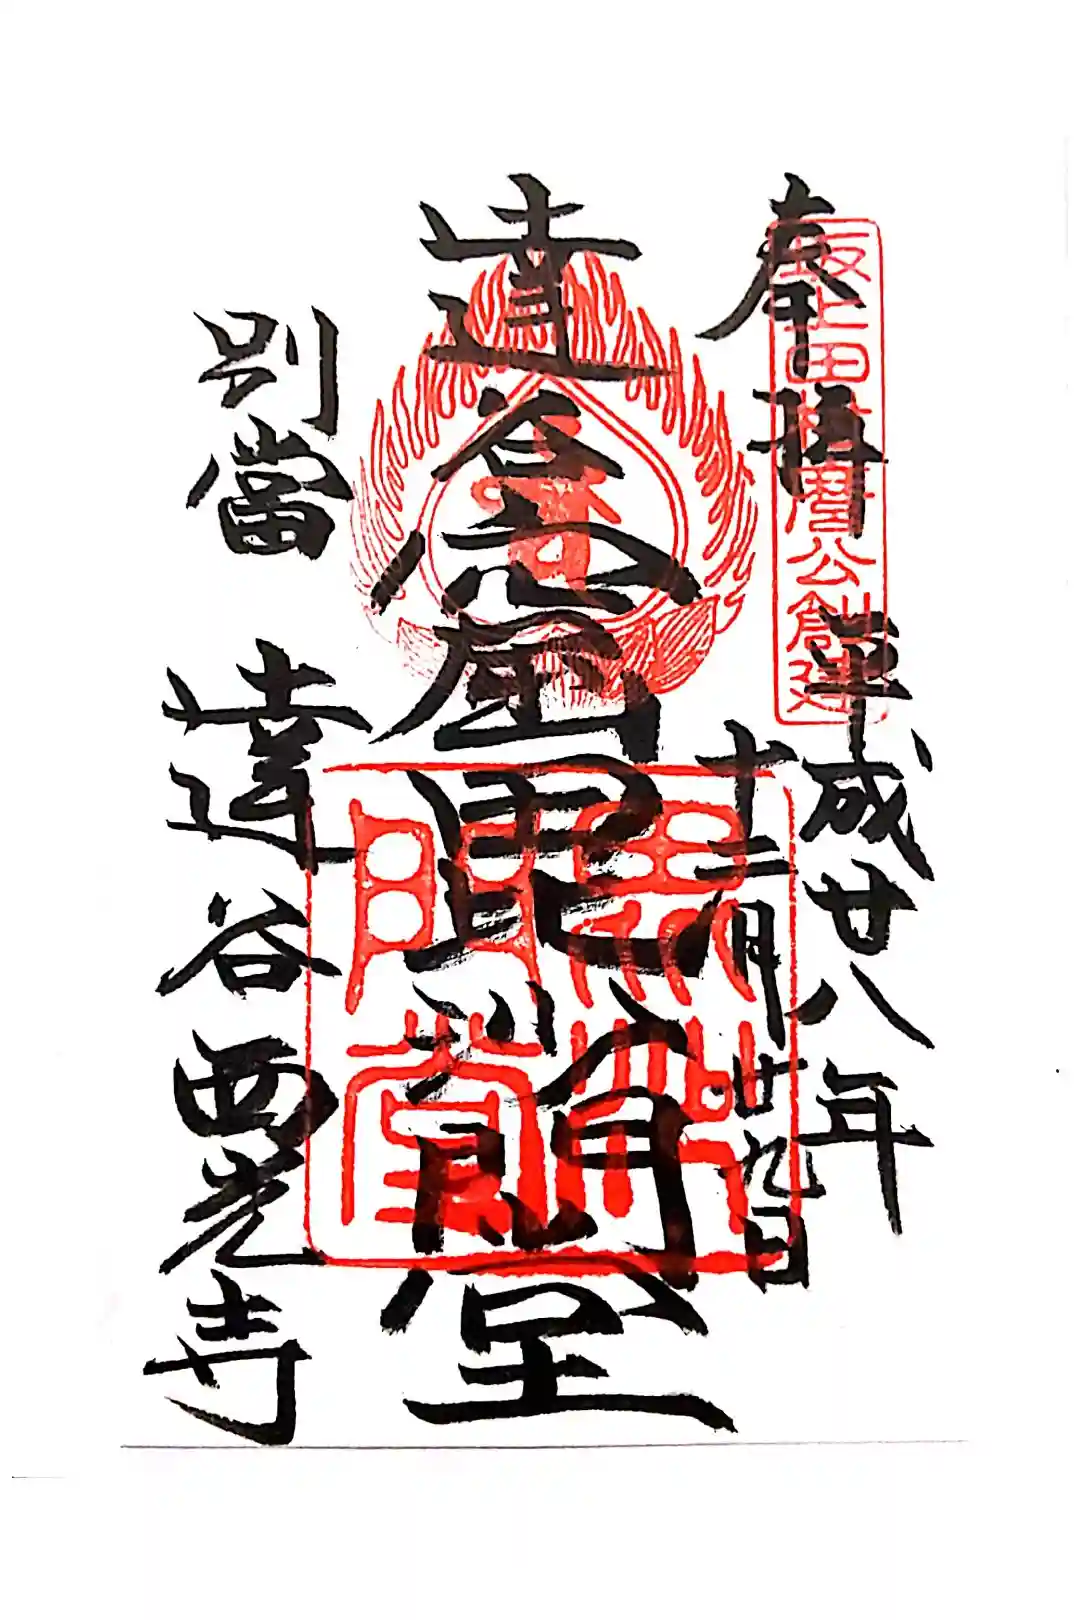 奉拝
坂上田村麿公創建
平成廿八年
十二月廿九日
達谷窟毘沙門堂
別當 達谷西光寺